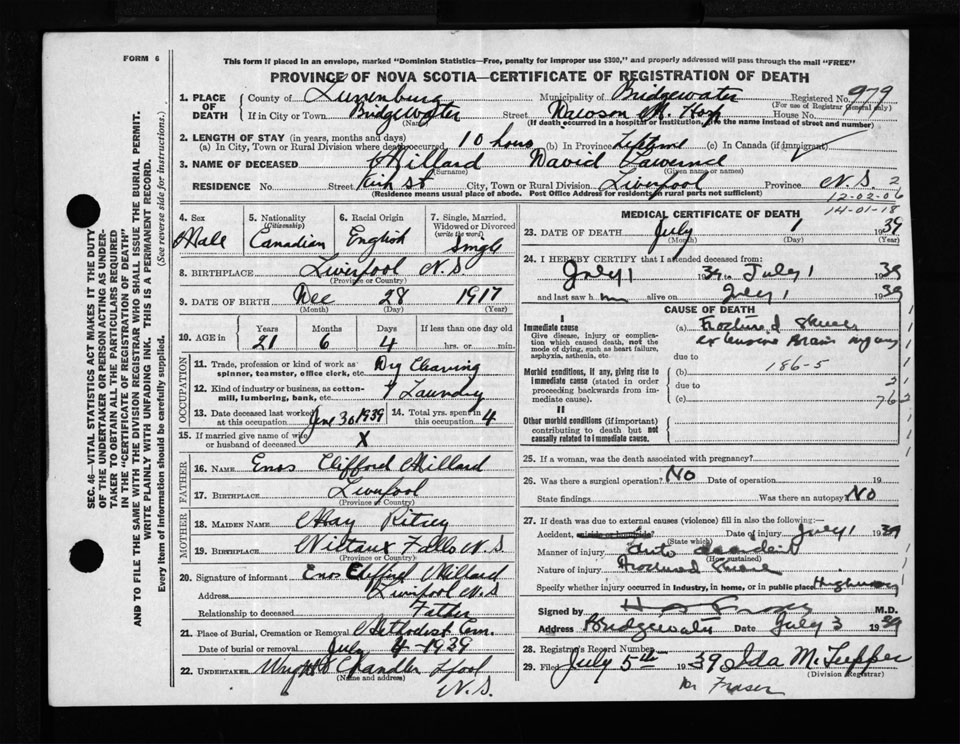 FORM 6
This form if placed in an envelope, marked "Dominion Statistics—Free, penalty for improper use $300," and properly addressed will pass through the mail "FREE"
PROVINCE OF NOVA SCOTIA—CERTIFICATE OF REGISTRATION OF DEATH
1. PLACE OF DEATH County of Lunenburg Municipality of Bridgewater Registered No. 979
(For use of Registrar General only)
If in City or Town Bridgewater Street Dawson M. Hosp House No.
(Name) (If death occurred in a hospital or institution, give the name instead of street and number)
2. LENGTH OF STAY (in years, months and days)
(a) In City, Town or Rural Division where death occurred 10 hours (b) In Province Lifetime (c) In Canada (if immigrant)
3. NAME OF DECEASED Millard David Lawrence
(Surname) (Given name or names)
RESIDENCE No. Street Fish St City, Town or Rural Division Liverpool Province N.S. 2
(Residence means usual place of abode. Post Office Address for residents in rural parts not sufficient)
12-02-06
14-01-18
4. Sex Male
5. Nationality (Citizenship) Canadian
6. Racial Origin English
7. Single, Married, Widowed or Divorced (write the word) Single
8. BIRTHPLACE Liverpool N.S
(Province or Country)
9. DATE OF BIRTH Dec 28 1917
(Month) (Day) (Year)
10. AGE in Years 21 Months 6 Days 4 If less than one day old hrs. or min.
OCCUPATION
11. Trade, profession or kind of work as spinner, teamster, office clerk, etc. Dry Cleaning
12. Kind of industry or business, as cotton-mill, lumbering, bank, etc. & Laundry
13. Date deceased last worked at this occupation June 30 1939
14. Total yrs. spent in this occupation 4
15. If married give name of wife or husband of deceased X
FATHER
16. NAME Enos Clifford Millard
17. BIRTHPLACE Liverpool
(Province or Country)
MOTHER
18. MAIDEN NAME May Ritcey
19. BIRTHPLACE Nictaux Falls N.S.
(Province or Country)
20. Signature of informant Enos Clifford Millard
Address Liverpool N.S
Relationship to deceased Father
21. Place of Burial, Cremation or Removal Methodist Cem.
Date of burial or removal July 4 1939
22. UNDERTAKER Wright & Chandler Lpool
(Name and address)
N.S.
MEDICAL CERTIFICATE OF DEATH
23. DATE OF DEATH July 1 1939
(Month) (Day) (Year)
24. I HEREBY CERTIFY that I attended deceased from:
July 1 1939 to July 1 1939
and last saw h im alive on July 1 1939
CAUSE OF DEATH
I
Immediate cause
Give disease, injury or complication which caused death, not the mode of dying, such as heart failure, asphyxia, asthenia, etc.
(a) Fractured Skull
extensive Brain injury
due to
186-5
Morbid conditions, if any, giving rise to immediate cause (stated in order proceeding backwards from immediate cause).
(b)
due to
(c)
II
Other morbid conditions (if important) contributing to death but not causally related to immediate cause.
25. If a woman, was the death associated with pregnancy?
26. Was there a surgical operation? NO Date of operation 19
State findings Was there an autopsy? NO
27. If death was due to external causes (violence) fill in also the following:—
Accident, suicide or homicide? Date of injury July 1 1939
(State which)
Manner of injury Auto accident
(How sustained)
Nature of injury Fractured Skull
Specify whether injury occurred in industry, in home, or in public place Highway
Signed by M.D.
Address Bridgewater Date July 3 1939
28. Registrar's Record Number
29. Filed July 5th 1939 Ida M. Tupper
(Division Registrar)
Dr Fraser
SEC. 46—VITAL STATISTICS ACT MAKES IT THE DUTY
OF THE UNDERTAKER OR PERSON ACTING AS UNDER-
TAKER TO OBTAIN ALL THE PARTICULARS REQUIRED
IN THE "CERTIFICATE OF REGISTRATION OF DEATH"
AND TO FILE THE SAME WITH THE DIVISION REGISTRAR WHO SHALL ISSUE THE BURIAL PERMIT.
WRITE PLAINLY WITH UNFADING INK. THIS IS A PERMANENT RECORD.
Every item of information should be carefully supplied. (See reverse side for instructions.)